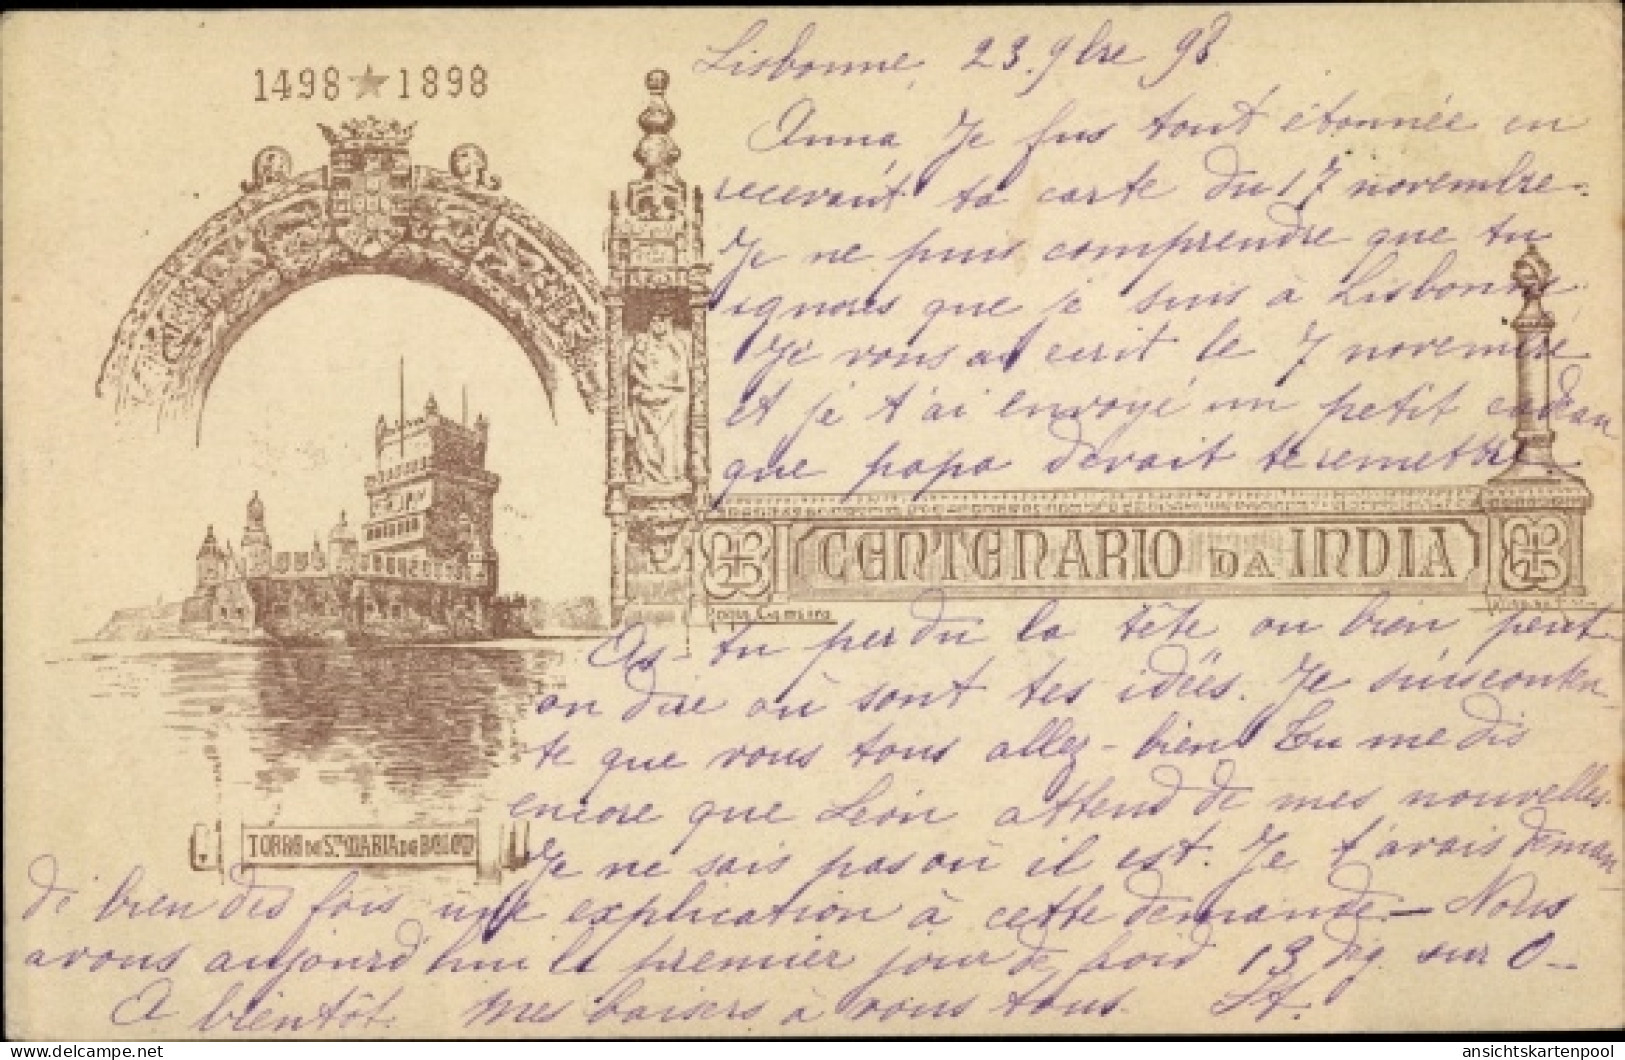 Lisbonne, 23. 9bre 98
1498 ★ 1898
Anna, Je fus tout étonnée en
recevant ta carte du 17 novembre.
Je ne puis comprendre que tu
ignores que je suis à Lisbonne.
Je vous ai écrit le 7 novembre
et je t'ai envoyé un petit cadeau
que papa devait te remettre.
CENTENARIO DA INDIA
As-tu perdu la tête ou bien peut-
on dire où sont tes idées. Je suis conten-
te que vous tous allez-bien. Tu me dis
encore que Léon attend de mes nouvelles.
TORRE DE S.TA MARIA DE BELEM
Je ne sais pas où il est. Je t'avais deman-
dé bien des fois une explication à cette demande. — Nous
avons aujourd'hui le premier jour de froid 13 deg. sur 0 —
A bientôt. Mes baisers à vous tous.
delcampe.net
ansichtskartenpool